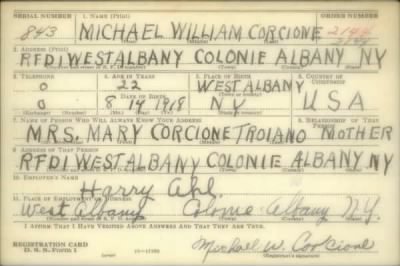 SERIAL NUMBER 1. NAME (Print) ORDER NUMBER
843 MICHAEL WILLIAM CORCIONE
2. ADDRESS (Print)
RFD1 WEST ALBANY COLONIE ALBANY NY
3. TELEPHONE 4. AGE IN YEARS 5. PLACE OF BIRTH 6. COUNTRY OF CITIZENSHIP
0 22 WEST ALBANY
DATE OF BIRTH
0 8 14 1918 NY USA
7. NAME OF PERSON WHO WILL ALWAYS KNOW YOUR ADDRESS 8. RELATIONSHIP OF THAT PERSON
MRS. MARY CORCIONE TROIANO MOTHER
9. ADDRESS OF THAT PERSON
RFD1 WEST ALBANY COLONIE ALBANY NY
10. EMPLOYER'S NAME
Harry Ahl.
11. PLACE OF EMPLOYMENT OR BUSINESS
West Albany Colonie Albany N.Y.
I AFFIRM THAT I HAVE VERIFIED ABOVE ANSWERS AND THAT THEY ARE TRUE.
REGISTRATION CARD
D. S. S. FORM 1 Michael W. Corcione